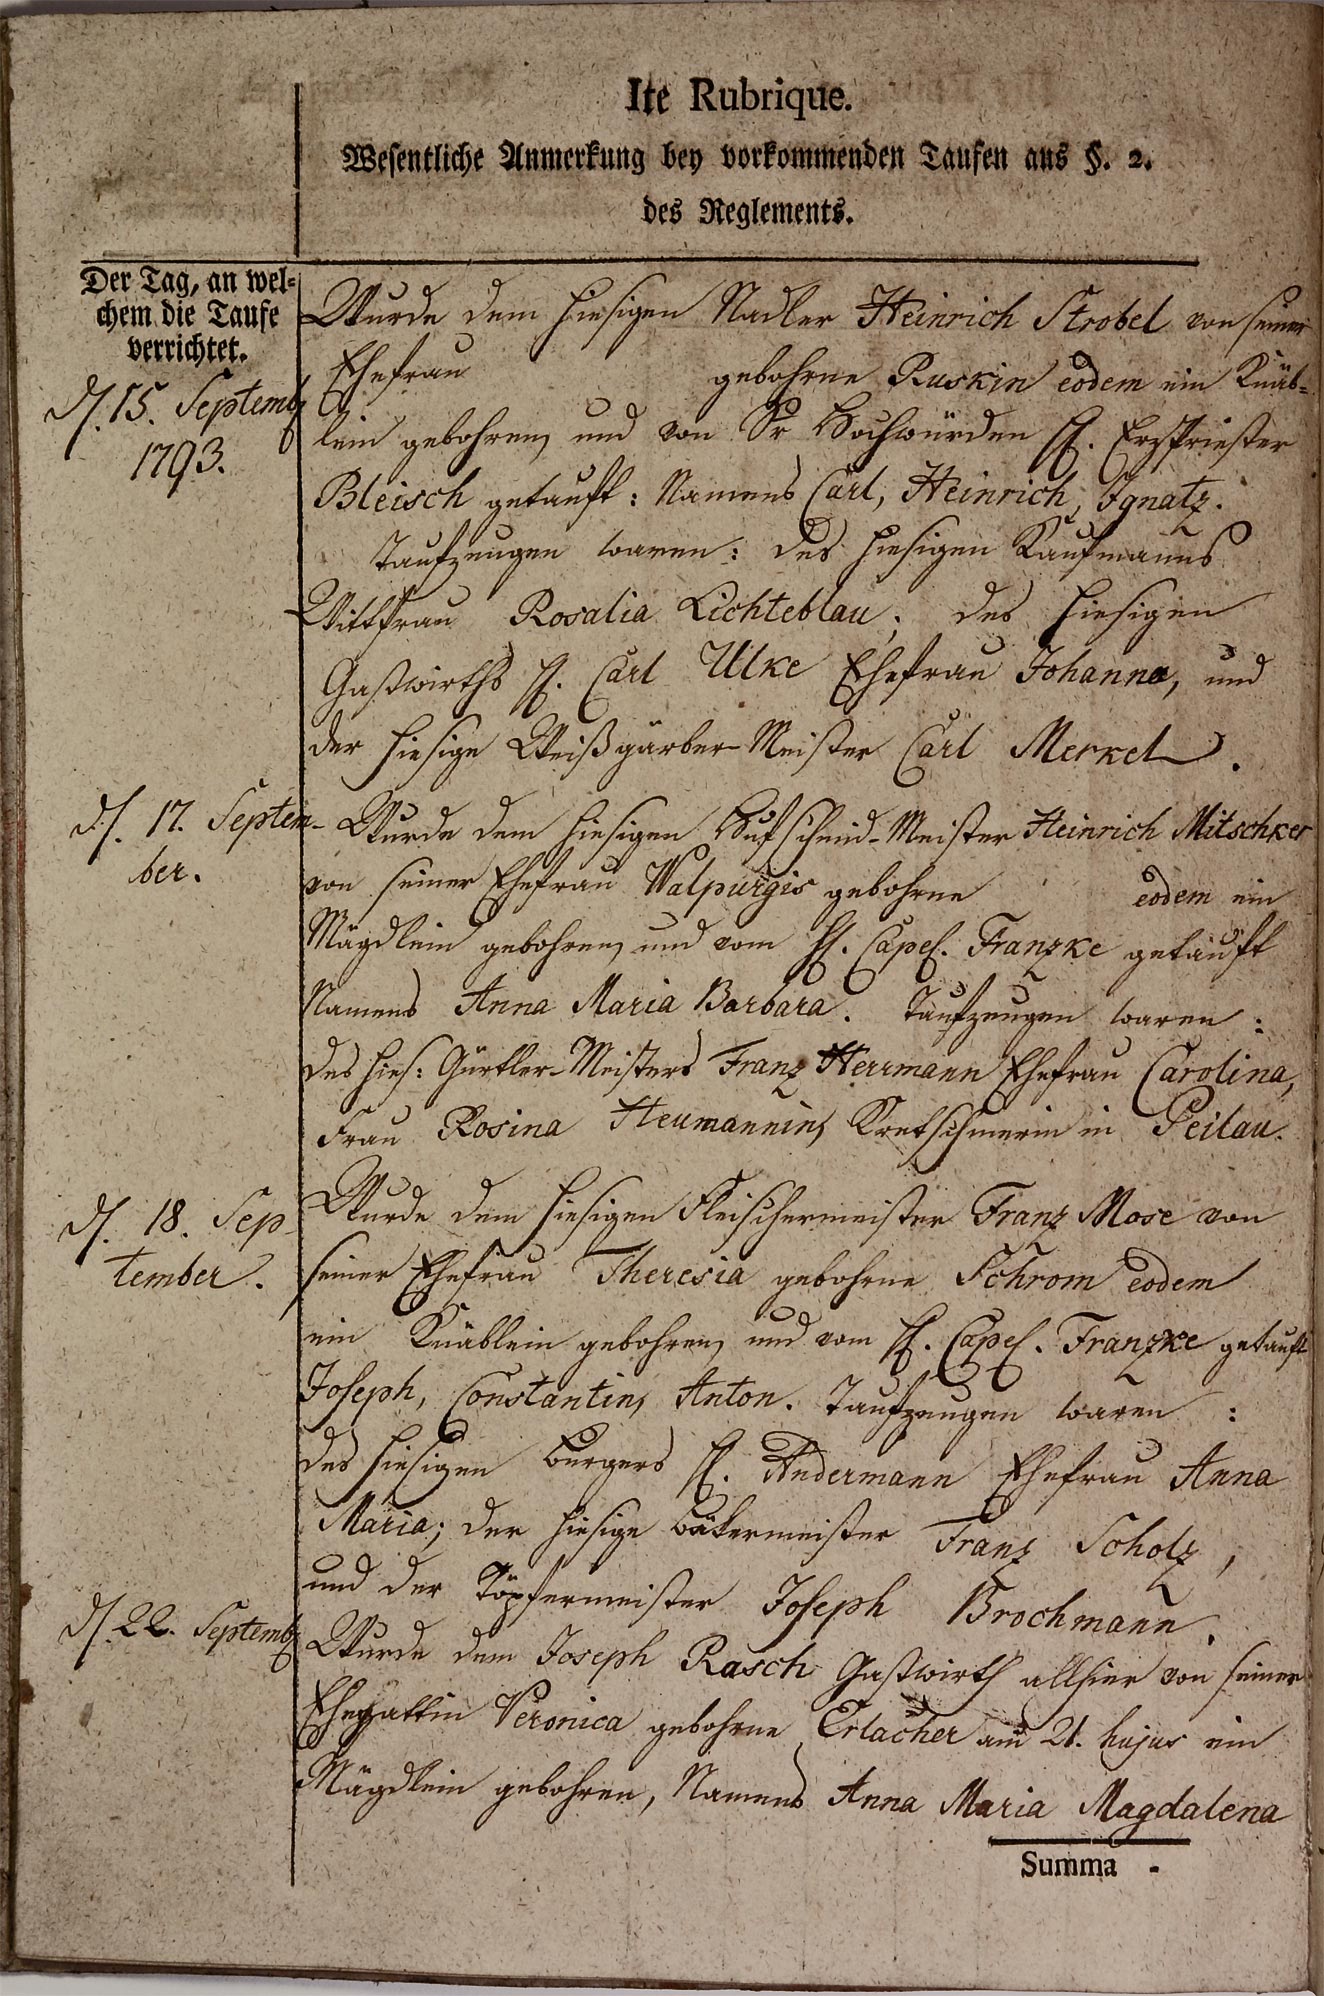 Ite Rubrique.
Wesentliche Anmerkung bey vorkommenden Taufen aus §. 2.
des Reglements.
Der Tag, an wel-
chem die Taufe
verrichtet.
d. 15. Septemb
1793.
Wurde dem hiesigen Nadler Heinrich Strobel von seiner
Ehefrau gebohrne Ruskin eodem ein Knäb-
lein gebohren, und von Sr Hochwürden H. Erzpriester
Bleisch getauft: Namens Carl, Heinrich, Ignatz.
Taufzeugen waren: des hiesigen Kaufmanns
Wittfrau Rosalia Lichteblau; des hiesigen
Gastwirths H. Carl Ulke Ehefrau Johanna, und
der hiesige Weißgärber-Meister Carl Merkel.
d. 17. Septem-
ber.
Wurde dem hiesigen Hufschmid-Meister Heinrich Mitschker
von seiner Ehefrau Walpurgis gebohrne eodem ein
Mägdlein gebohren, und vom H. Capel. Franzke getauft
Namens Anna Maria Barbara. Taufzeugen waren:
des hies: Gürtler-Meisters Franz Herrmann Ehefrau Carolina,
Frau Rosina Heumannin, Kretschmerin in Peilau.
d. 18. Sep-
tember.
Wurde dem hiesigen Fleischermeister Franz Mose von
seiner Ehefrau Theresia gebohrne Schrom eodem
ein Knäblein gebohren, und vom H. Capel. Franzke getauft
Joseph, Constantin, Anton. Taufzeugen waren:
des hiesigen Burgers H. Andermann Ehefrau Anna
Maria; der hiesige Bäkermeister Franz Scholz,
und der Töpfermeister Joseph Brochmann.
d. 22. Septemb
Wurde dem Joseph Rasch Gastwirth allhier von seiner
Ehegattin Veronica gebohrne Erlacher am 21. hujus ein
Mägdlein gebohren, Namens Anna Maria Magdalena
Summa -